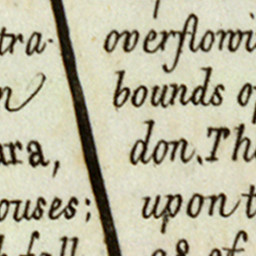 tra-
n
ara,
ouses:
overflowi
bounds o
don. Th
upon t